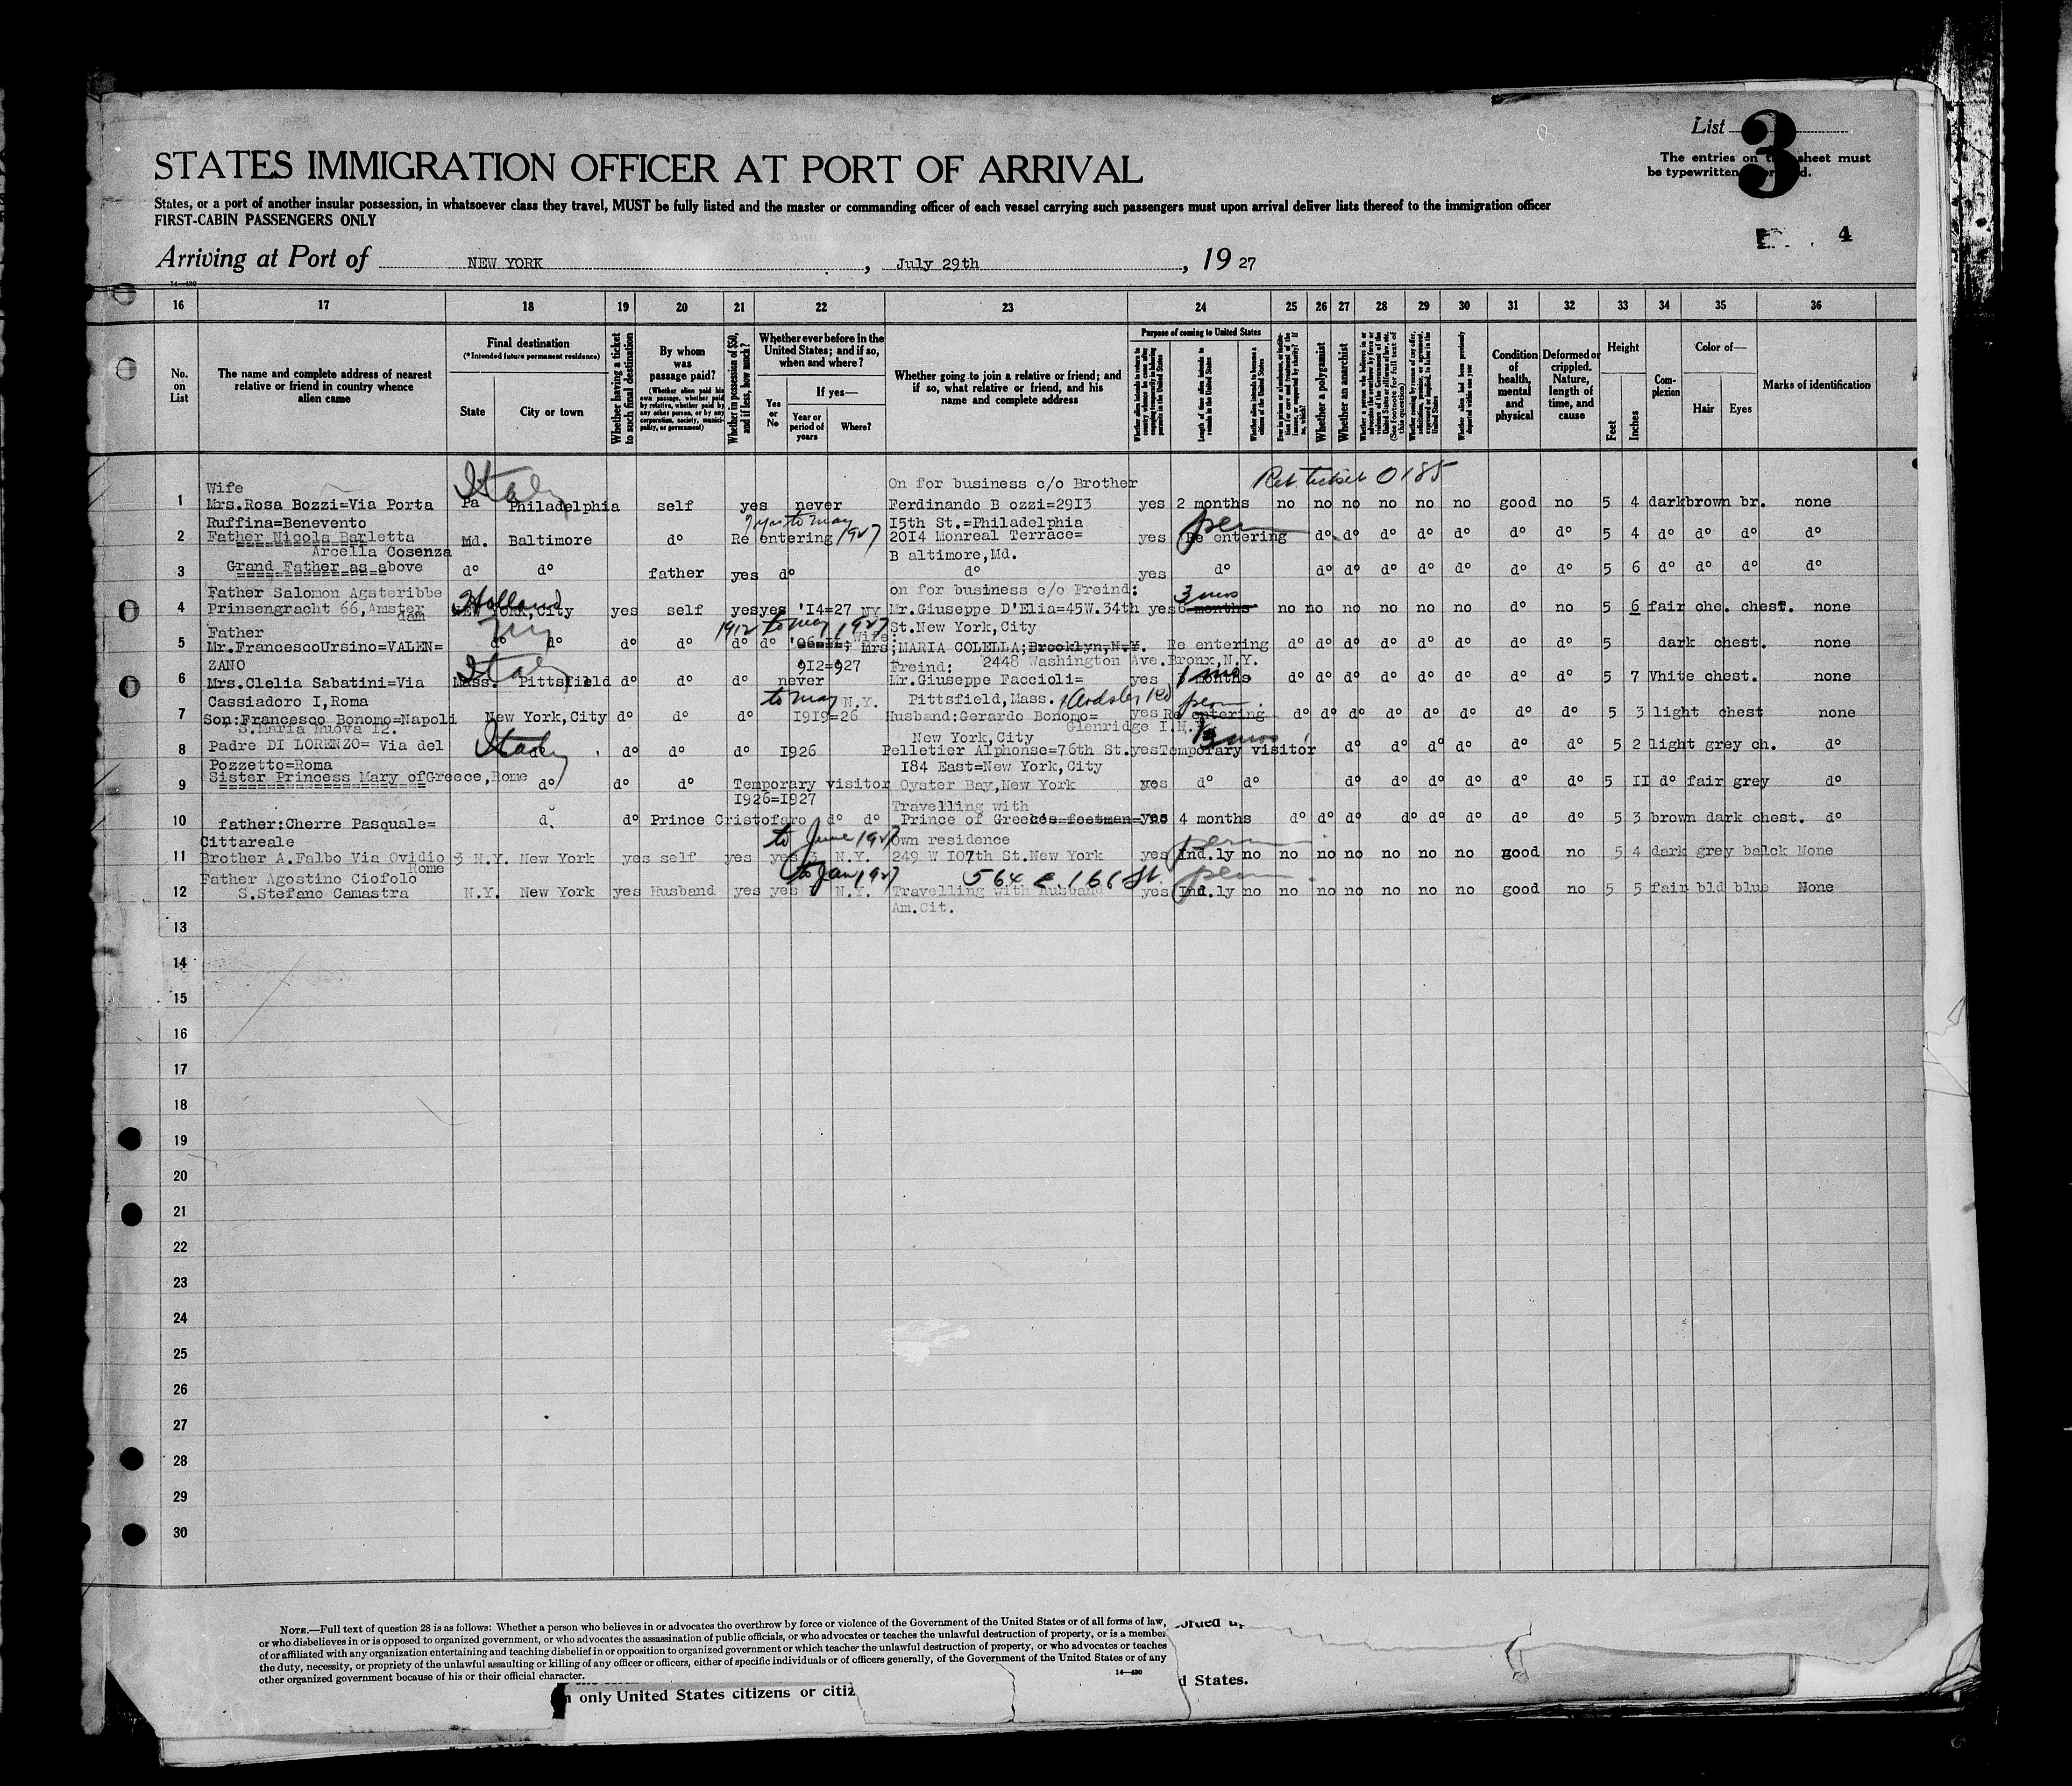 List 3
The entries on this sheet must
be typewritten or printed.
STATES IMMIGRATION OFFICER AT PORT OF ARRIVAL
States, or a port of another insular possession, in whatsoever class they travel, MUST be fully listed and the master or commanding officer of each vessel carrying such passengers must upon arrival deliver lists thereof to the immigration officer
FIRST-CABIN PASSENGERS ONLY
4
Arriving at Port of NEW YORK, July 29th, 19 27
16 17 18 19 20 21 22 23 24 25 26 27 28 29 30 31 32 33 34 35 36
No. on List
The name and complete address of nearest relative or friend in country whence alien came
Final destination
(*Intended future permanent residence)
State
City or town
Whether having a ticket to such final destination
By whom was passage paid?
(Whether alien paid his own passage, whether paid by relative, whether paid by any other person, or by any corporation, society, municipality, or government)
Whether in possession of $50, and if less, how much?
Whether ever before in the United States; and if so, when and where?
Yes or No
If yes—
Year or period of years
Where?
Whether going to join a relative or friend; and if so, what relative or friend, and his name and complete address
Purpose of coming to United States
Length of time alien intends to remain in the United States
Whether alien intends to become a citizen of the United States
Whether a polygamist
Whether an anarchist
Condition of health, mental and physical
Deformed or crippled. Nature, length of time, and cause
Height
Feet
Inches
Complexion
Color of—
Hair
Eyes
Marks of identification
Ret ticket 0185
Wife On for business c/o Brother
1 Mrs.Rosa Bozzi=Via Porta Pa Italy Philadelphia self yes never Ferdinando B ozzi=2913 yes 2 months no no no no no no good no 5 4 dark brown br. none
Ruffina=Benevento 7 yrs to May 1927 I5th St.=Philadelphia perm
2 Father Nicola Barletta Md. Baltimore do Re entering 20I4 Monreal Terrace= yes Re entering do do do do do do do 5 4 do do do do
Arcella Cosenza B altimore,Md.
3 Grand Father as above do do father yes do do yes do do do do do do do do 5 6 do do do do
Father Salomon Agsteribbe Holland on for business c/o Freind: 3 mos
4 Prinsengracht 66,Amsterdam New York,City yes self yes yes 'I4=27 NY Mr.Giuseppe D'Elia=45W.34th yes 6 months no no no no no no do no 5 6 fair che. chest. none
Father 1912 to May 1927 St.New York,City
5 Mr.FrancescoUrsino=VALEN= do do do do do do Wife Mrs;MARIA COLELLA;Brooklyn,N.Y. Re entering do do do do do do do do 5 dark chest. none
ZANO Italy 9I2=927 Freind: 2448 Washington Ave.Bronx,N.Y.
6 Mrs.Clelia Sabatini=Via Mass. Pittsfield do do do never Mr.Giuseppe Faccioli= yes months do do do do do do do do 5 7 White chest. none
Cassiadoro I,Roma to May N.Y. Pittsfield,Mass. Ardsley Rd perm
7 Son:Francesco Bonomo=Napoli New York,City do do do I9I9=26 Husband:Gerardo Bonomo= yes Re entering do do do do do do do do 5 3 light chest none
S.Maria Nuova I2. Glenridge
Padre DI LORENZO= Via del Italy New York,City
8 do do do I926 Pelletier Alphonse=76th St. yes Temporary visitor do do do do do do 5 2 light grey ch. do
Pozzetto=Roma I84 East=New York,City
9 Sister Princess Mary ofGreece,Rome do do do Temporary visitor Oyster Bay,New York yes do do do do do do do do 5 II do fair grey do
I926=I927 Travelling with
10 father:Cherre Pasquale= do Prince Cristofaro do do Prince of Greece yes 4 months do do do do do do do do 5 3 brown dark chest. do
Cittareale to June 1927 own residence perm
11 Brother A.Falbo Via Ovidio 3 N.Y. New York yes self yes yes N.Y. 249 W I07th St.New York yes Ind.ly no no no no no no no good no 5 4 dark grey balck None
Rome
Father Agostino Ciofolo to Jan 1927 564 E 166 St. perm
12 S.Stefano Camastra N.Y. New York yes Husband yes yes N.Y. Travelling with husband yes Ind.ly no no no no no no no good no 5 5 fair bld blue None
Am.Cit.
13
14
15
16
17
18
19
20
21
22
23
24
25
26
27
28
29
30
NOTE.—Full text of question 28 is as follows: Whether a person who believes in or advocates the overthrow by force or violence of the Government of the United States or of all forms of law,
or who disbelieves in or is opposed to organized government, or who advocates the assassination of public officials, or who advocates or teaches the unlawful destruction of property, or is a member
of or affiliated with any organization entertaining and teaching disbelief in or opposition to organized government or which teaches the unlawful destruction of property, or who advocates or teaches
the duty, necessity, or propriety of the unlawful assaulting or killing of any officer or officers, either of specific individuals or of officers generally, of the Government of the United States or of any
other organized government because of his or their official character.
14—430
only United States citizens or citiz d States.